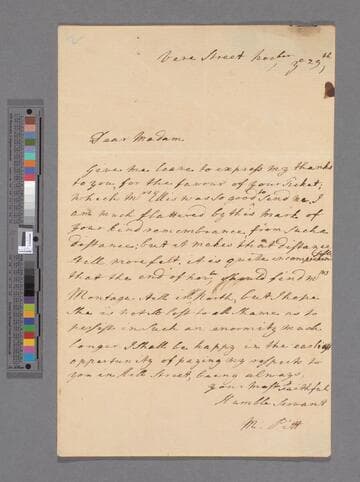 Vere Street Novbr ye 29th
Dear Madam
Give me leave to express my thanks
to you for the favour of your Ticket,
which Mrs Ellis was so good to send me. I
am much flattered by this mark of
your kind remembrance from such a
distance; but it makes that distance
still more felt. it is quite incomprehensible
that the end of Novbr should find Mrs
Montagu still in North, but I hope
she is not so lost to all shame as to
persist in such an enormity much
longer I shall be happy in the earliest
opportunity of paying my respects to
you in Hill Street, being always
your Most Faithful
Humble Servant
M: Pitt